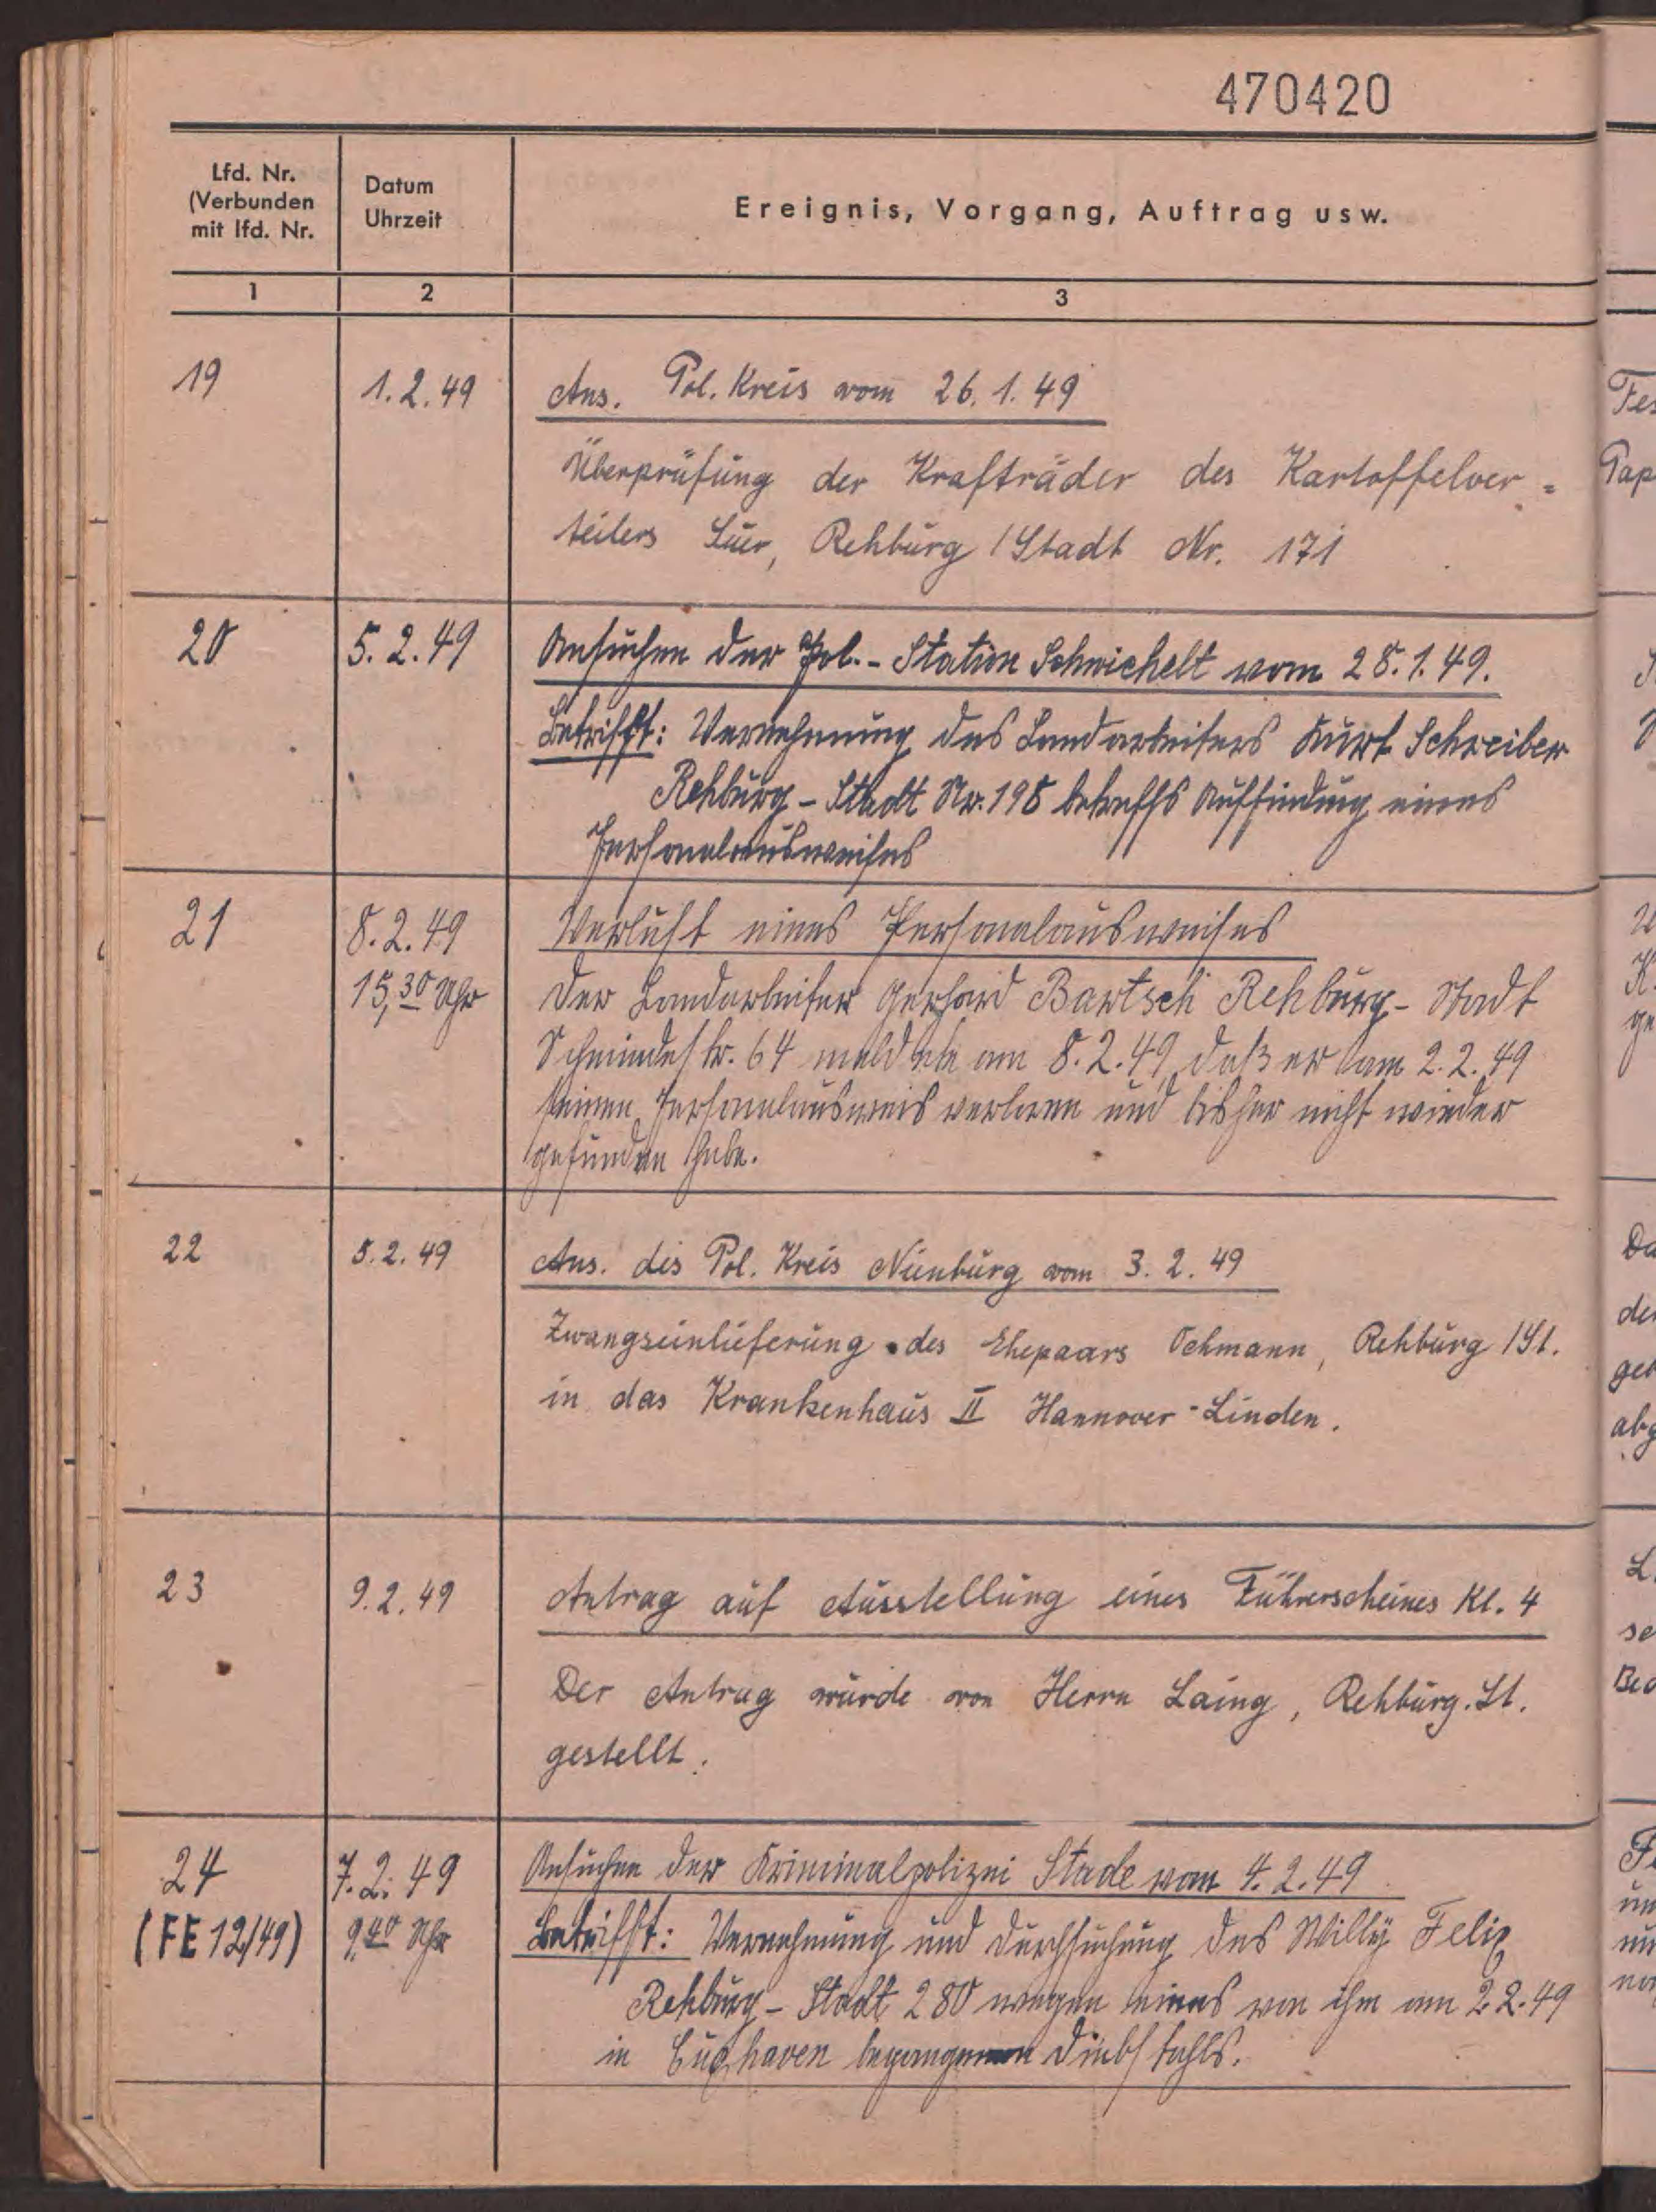 470420
Lfd. Nr.
(Verbunden
mit lfd. Nr.
Datum
Uhrzeit
Ereignis, Vorgang, Auftrag usw.
1 2 3
19 1.2.49 Ans. Pol. Kreis vom 26.1.49
Überprüfung der Krafträder des Kartoffelver=
teilers Suer, Rehburg /Stadt Nr. 171
20 5.2.49 Ansuchen der Pol.-Station Schwichelt vom 28.1.49.
Betrifft: Vernehmung des Landarbeiters Kurt Schreiber
Rehburg-Stadt Nr. 198 betreffs Auffindung eines
Personalausweises
21 8.2.49 Verlust eines Personalausweises
15,30 Uhr Der Landarbeiter Gerhard Bartsch Rehburg-Stadt
Schmiedestr. 64 meldete am 8.2.49, daß er am 2.2.49
seinen Personalausweis verloren und bisher nicht wieder
gefunden habe.
22 5.2.49 Ans. des Pol. Kreis Nienburg vom 3.2.49
Zwangseinlieferung des Ehepaars Oehmann, Rehburg /St.
in das Krankenhaus II Hannover-Linden.
23 9.2.49 Antrag auf Ausstellung eines Führerscheines Kl. 4
Der Antrag wurde von Herrn Laing, Rehburg. St.
gestellt.
24 7.2.49 Ansuchen der Kriminalpolizei Stade vom 4.2.49
(FE 12/49) 9.40 Uhr Betrifft: Vernehmung und Durchsuchung des Willy Felix
Rehburg-Stadt 280 wegen eines von ihm am 2.2.49
in Cuxhaven begangenen Diebstahls.